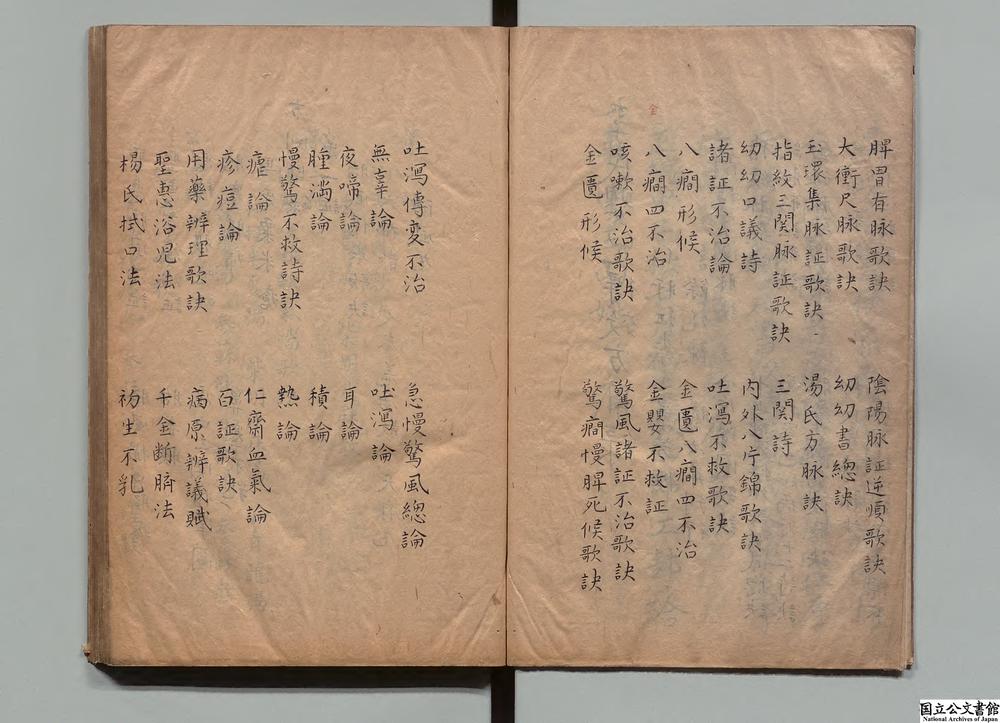 脾胃有脉歌訣　陰陽脉証逆順歌訣
大衝尺脉歌訣　幼幼書總訣
玉環集脉証歌訣　湯氏方脉訣
指紋三関脉証歌訣　三関詩
幼幼口議詩　内外八片錦歌訣
諸証不治論　吐瀉不救歌訣
八癇形候　金匱八癇四不治
金
八癇四不治　金嬰不救証
咳嗽不治歌訣　驚風諸証不治歌訣
金匱形候　驚癇慢脾死候歌訣
吐瀉傳变不治　急慢驚風總論
無辜論　吐瀉論
夜啼論　耳論
腫満論　積論
慢驚不救詩訣　熱論
瘧論　仁齋血氣論
疹痘論　百証歌訣
用藥辨理歌訣　病原辨議賦
聖惠浴児法　千金断臍法
楊氏拭口法　初生不乳
国立公文書館
National Archives of Japan